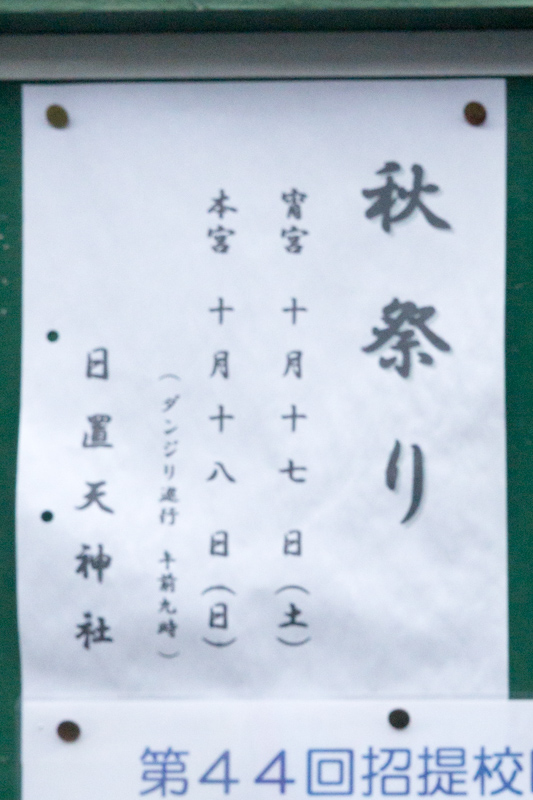 秋祭り
宵宮 十月十七 日(土)
本宮 十月十八 日(日)
(ダンジリ進行 午前九時)
日置天神社
第44回招提校